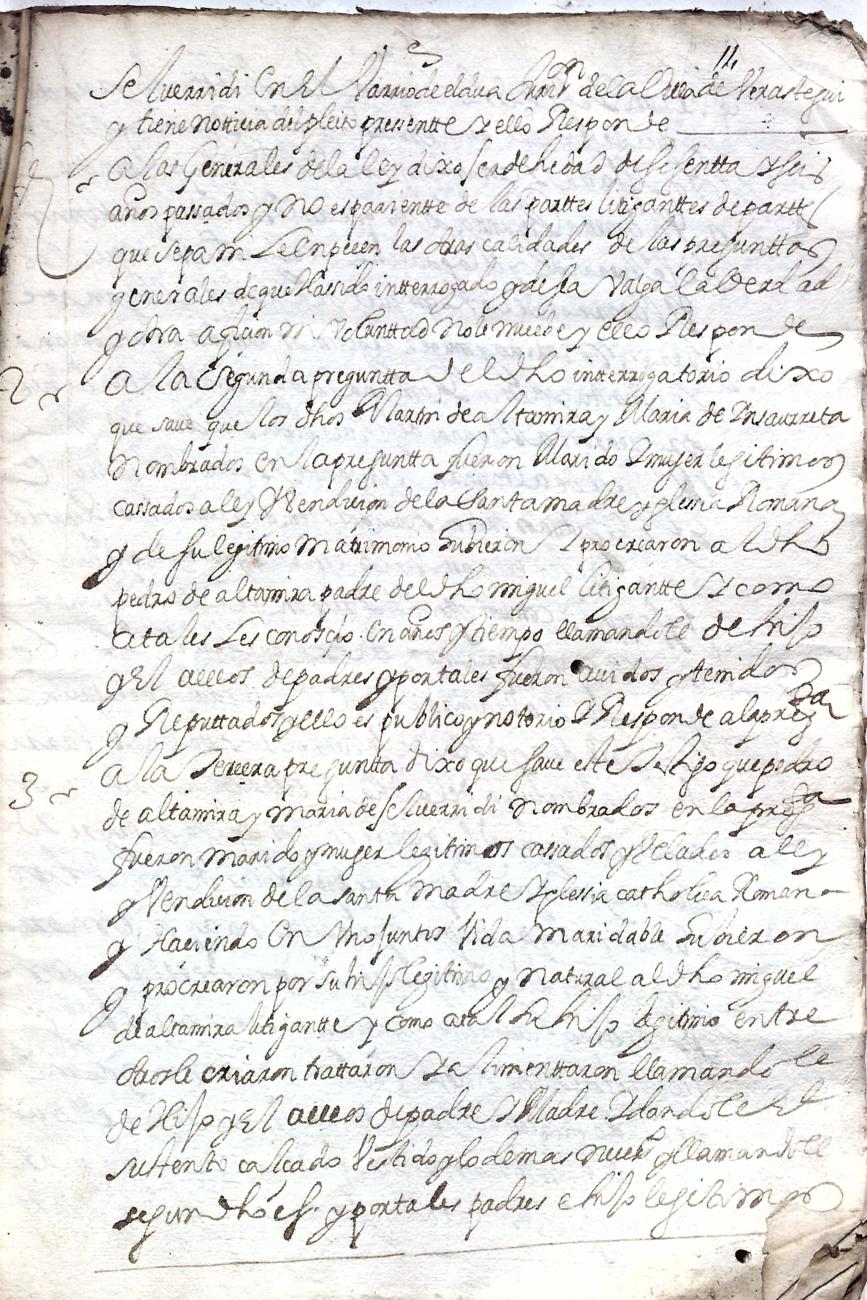 11
Seluerridi En El Varrio de eldua Jurison de la Villa de Verastegui
y tiene notticia del pleito pressentte y ello Responde
a las Generales de la ley dixo ser de hedad de sesentta y seis
años passados y no es parientte de las parttes litiganttes de partte
que sepa ni Le enpecen las otras calidades de las preguntas
generales de que a sido intterrogado y dessea Valga la Verdad
y otra aficion ni Voluntad no le mueebe y ello Responde
2 a la Segunda preguntta del dho intterrogatorio dixo
que saue que los dhos Martin de altamira y Maria de Insaurreta
nombrados en la pregunta fueron Marido y muger legitimos
cassados a ley y Vendicion de la Santa madre yglessia Romana
y de su legitimo matrimonio hubieron y procrearon al dho
pedro de altamira padre del dho miguel litigantte y como
a tales Les conosçio en años y tiempo llamandole de hijo
y El a ellos de padres y por tales fueron auidos y tenidos
y Reputtados y ello es publico y notorio y Responde a la pregta
3 a la Tercera preguntta dixo que saue este Testigo que pedro
de altamira y maria de Seluerridi nombrados en la pregta
fueron marido y muger legitimos cassados y Velados a ley
y Vendicion de la santa madre yglessia catholica Romana
y Haciendo En Vno juntos Vida maridable hubieron
y procrearon por su hijo legitimo y natural al dho miguel
de altamira litigantte y como a tal su hijo legitimo entre
otros le criaron trattaron y alimenttaron llamandole
de Hijo y El a ellos de padre y Madre y dandole El
sustento calçado Vestido y lo demas neces y llamandole
segun dho es y por tales padres e hijo legitimos